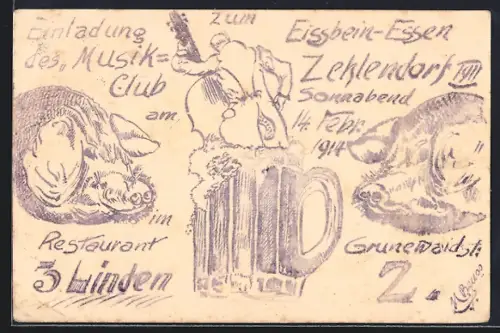 Einladung zum Eissbein-Essen
des „Musik=
Club
Zehlendorf 1911"
Sonnabend
am 14. Febr.
1914
im
Restaurant Grunewaldstr.
3 Linden 2.